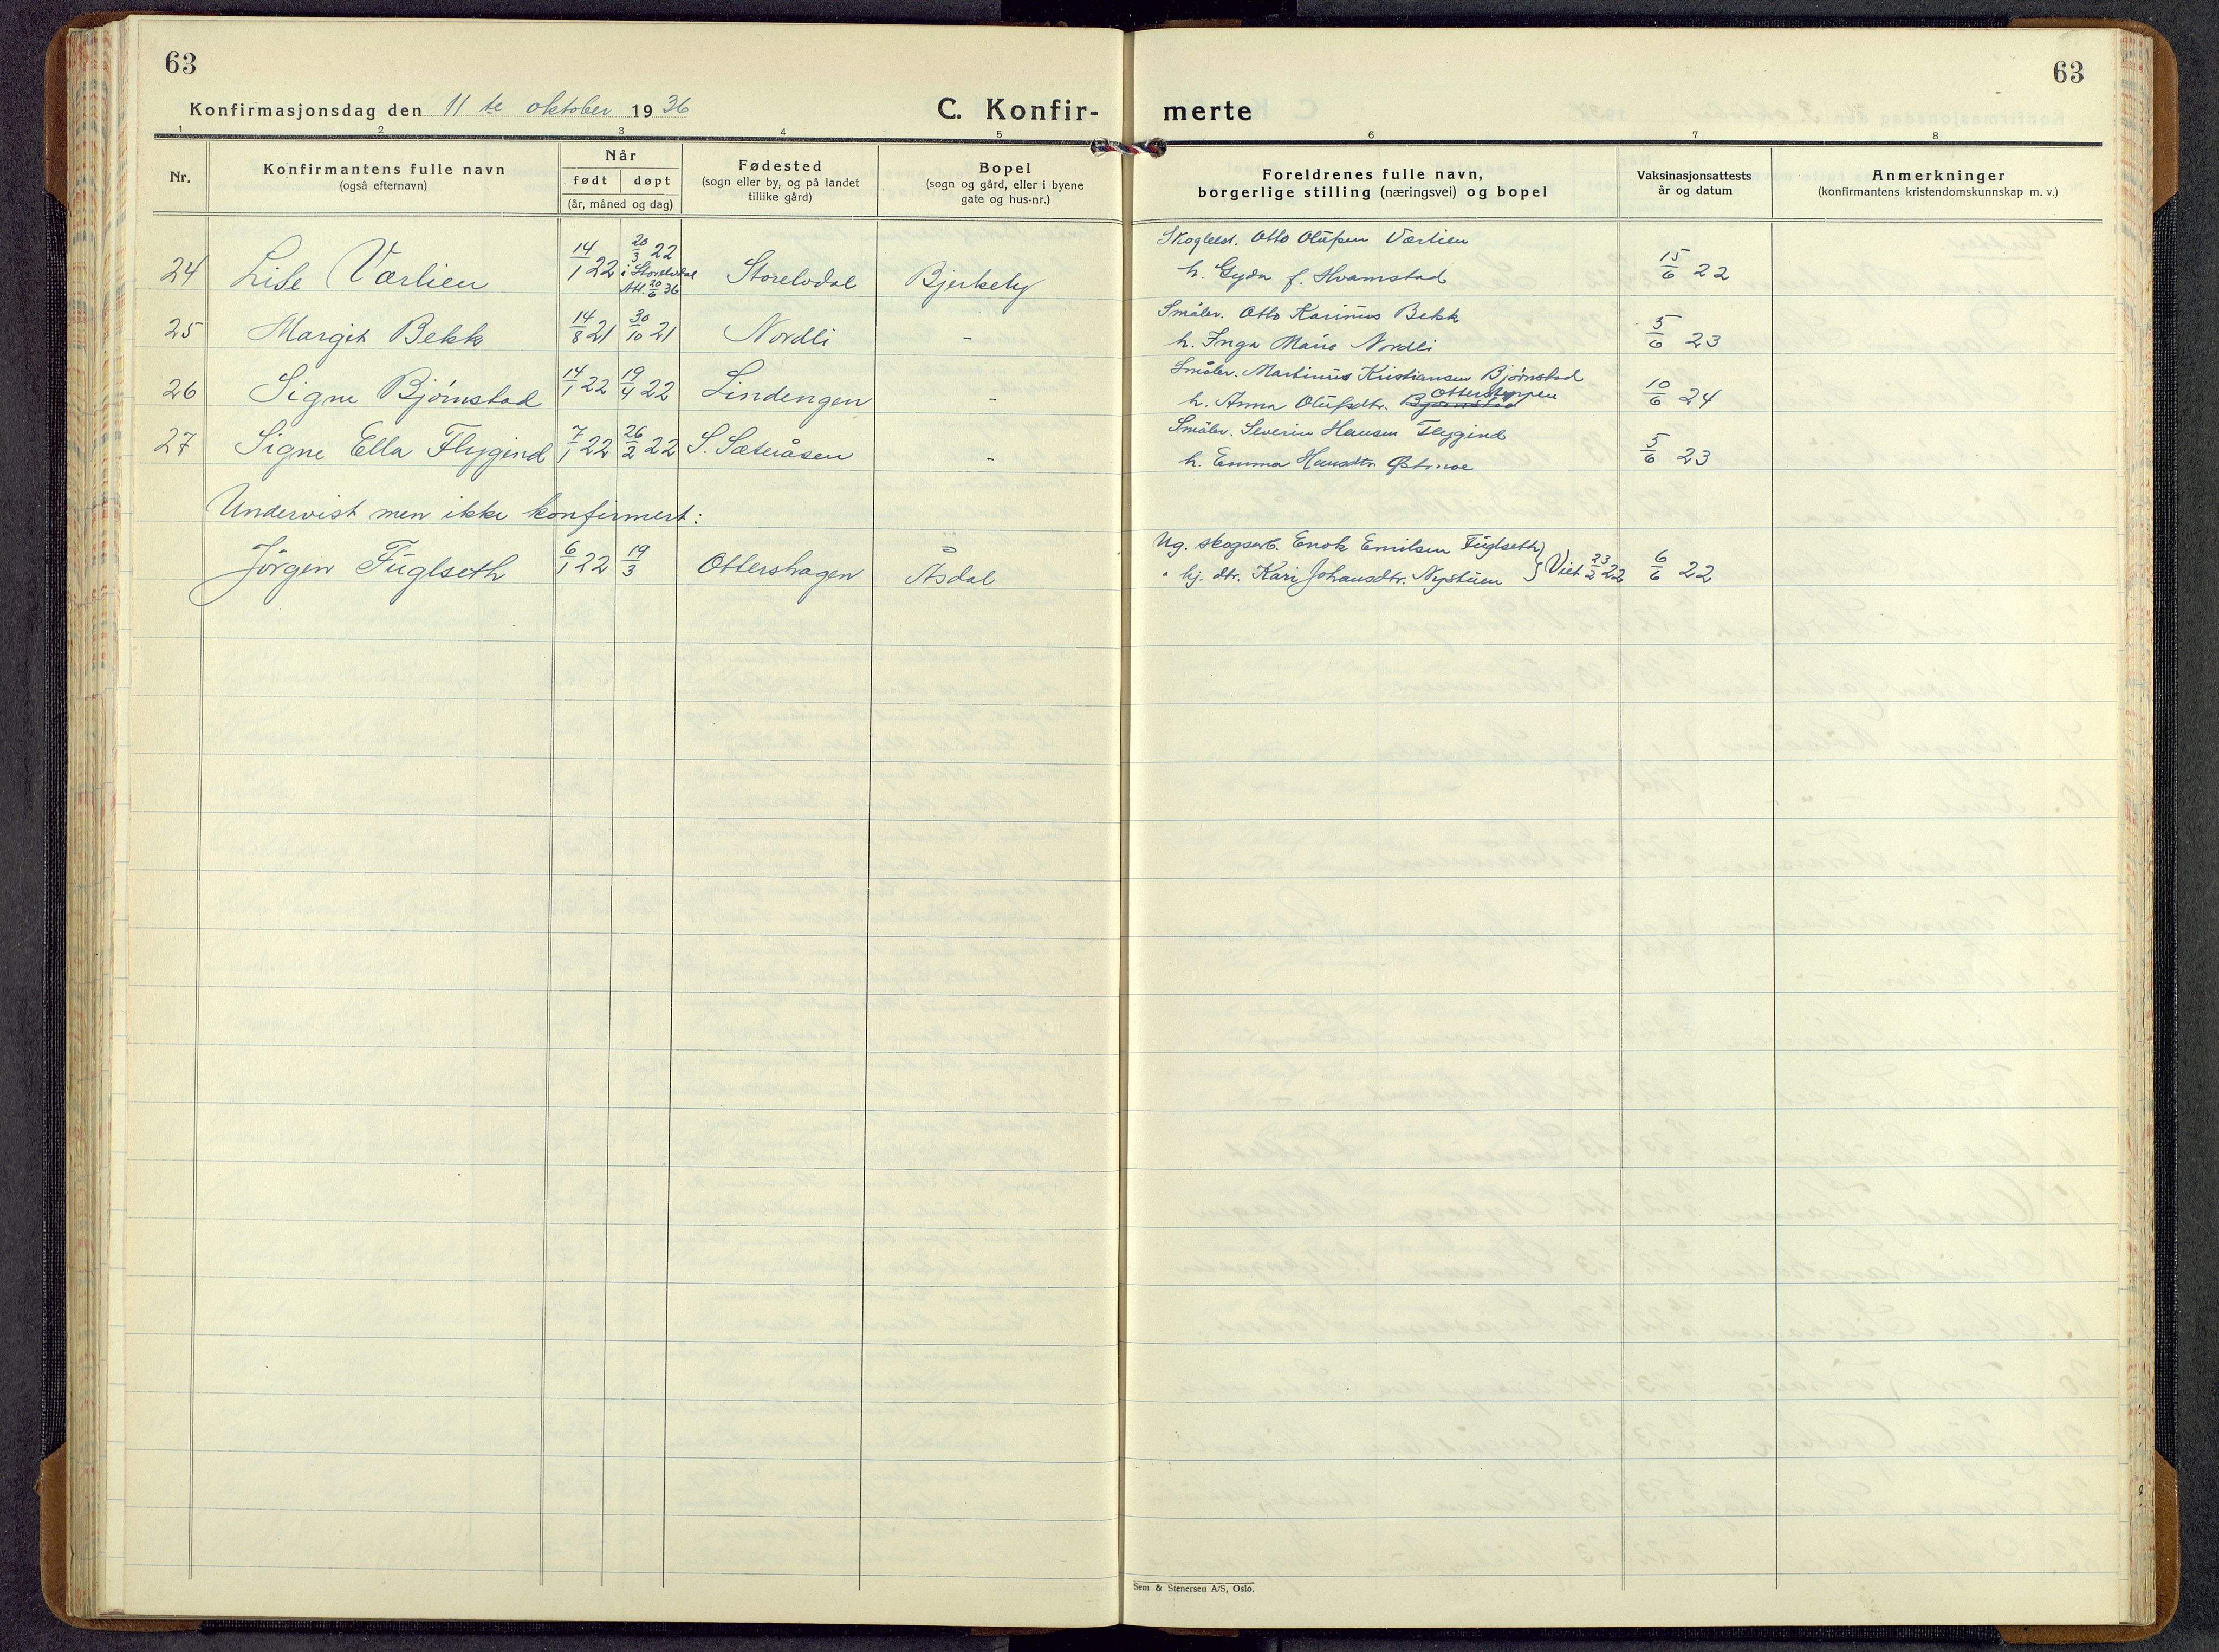 63
63
Konfirmasjonsdag den 11te oktober 1936
C. Konfir-
merte
1 2 3 4 5 6 7 8
Nr.
Konfirmantens fulle navn
(også efternavn)
Når
født døpt
(år, måned og dag)
Fødested
(sogn eller by, og på landet
tillike gård)
Bopel
(sogn og gård, eller i byene
gate og hus-nr.)
Foreldrenes fulle navn,
borgerlige stilling (næringsvei) og bopel
Vaksinasjonsattests
år og datum
Anmerkninger
(konfirmantens kristendomskunnskap m. v.)
24 Lise Værlien 14/1 22 20/3 22 i Storelvdal Att. 20/6 36 Storelvdal Bjerkely
Skogbest. Otto Olufsen Værlien
h. Gyda f. Hvamstad 15/6 22
25 Margit Bekk 14/8 21 30/10 21 Nordli -
Småbr. Otto Karinius Bekk
h. Inga Marie Nordli 5/6 23
26 Signe Bjørnstad 14/1 22 19/4 22 Lindengen -
Småbr. Martinus Kristiansen Bjørnstad
h. Anna Olufsdtr. Bjørnstad 10/6 24
27 Signe Ella Flygind 7/1 22 26/2 22 S. Sæteråsen -
Småbr. Severin Hansen Flygind
h. Emma Hansdtr. 5/6 23
Undervist men ikke konfirmert:
Jörgen Fuglseth 6/1 22 19/3 Ottershagen Åsdal
Ug. skogsarb. Enok Emilsen Fuglseth
" hj. dtr. Kari Johansdtr. Nystuen } Viet 23/2 22 6/6 22
Sem & Stenersen A/S, Oslo.